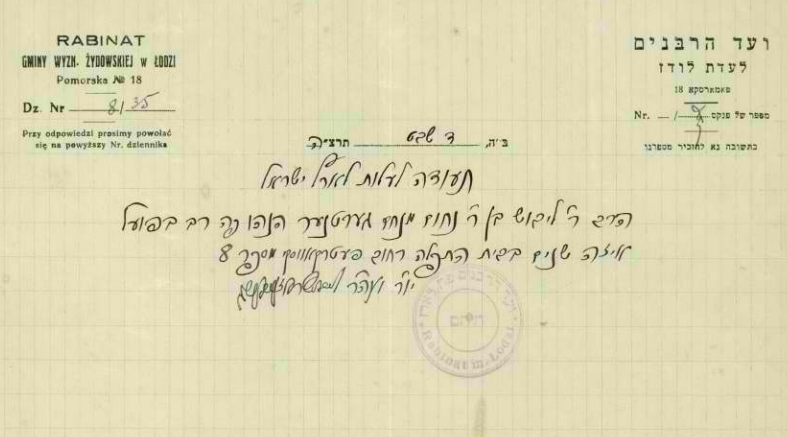 RABINAT
GMINY WYZN. ŻYDOWSKIEJ w ŁODZI
Pomorska № 18
Dz. Nr 8/35
Przy odpowiedzi prosimy powołać
się na powyższy Nr. dziennika
ועד הרבנים
לעדת לודז
פאמארסקא 18
מספר של פנקס / Nr. —
בתשובה נא להזכיר מספרנו
ב״ה, ד שבט תרצ״ה
תעודה לעלות לארץ ישראל
הרב ר' ליבוש בן ר' נחום מנחם גערטנער הנהו פה רב בפועל
איזה שנים בבית התפלה רחוב פעטרקאווסקי מספר 8
יו״ר ועה״ר
ועד הרבנים
Rabinat m. Łodzi